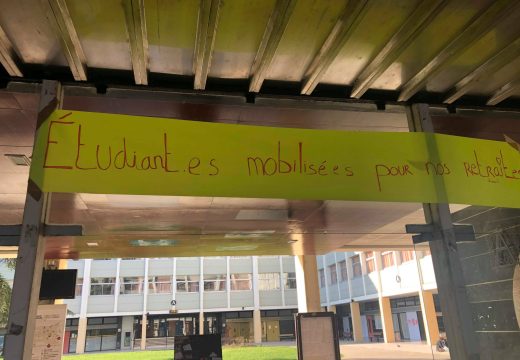 Étudiant.es mobilisé.es pour nos retraites